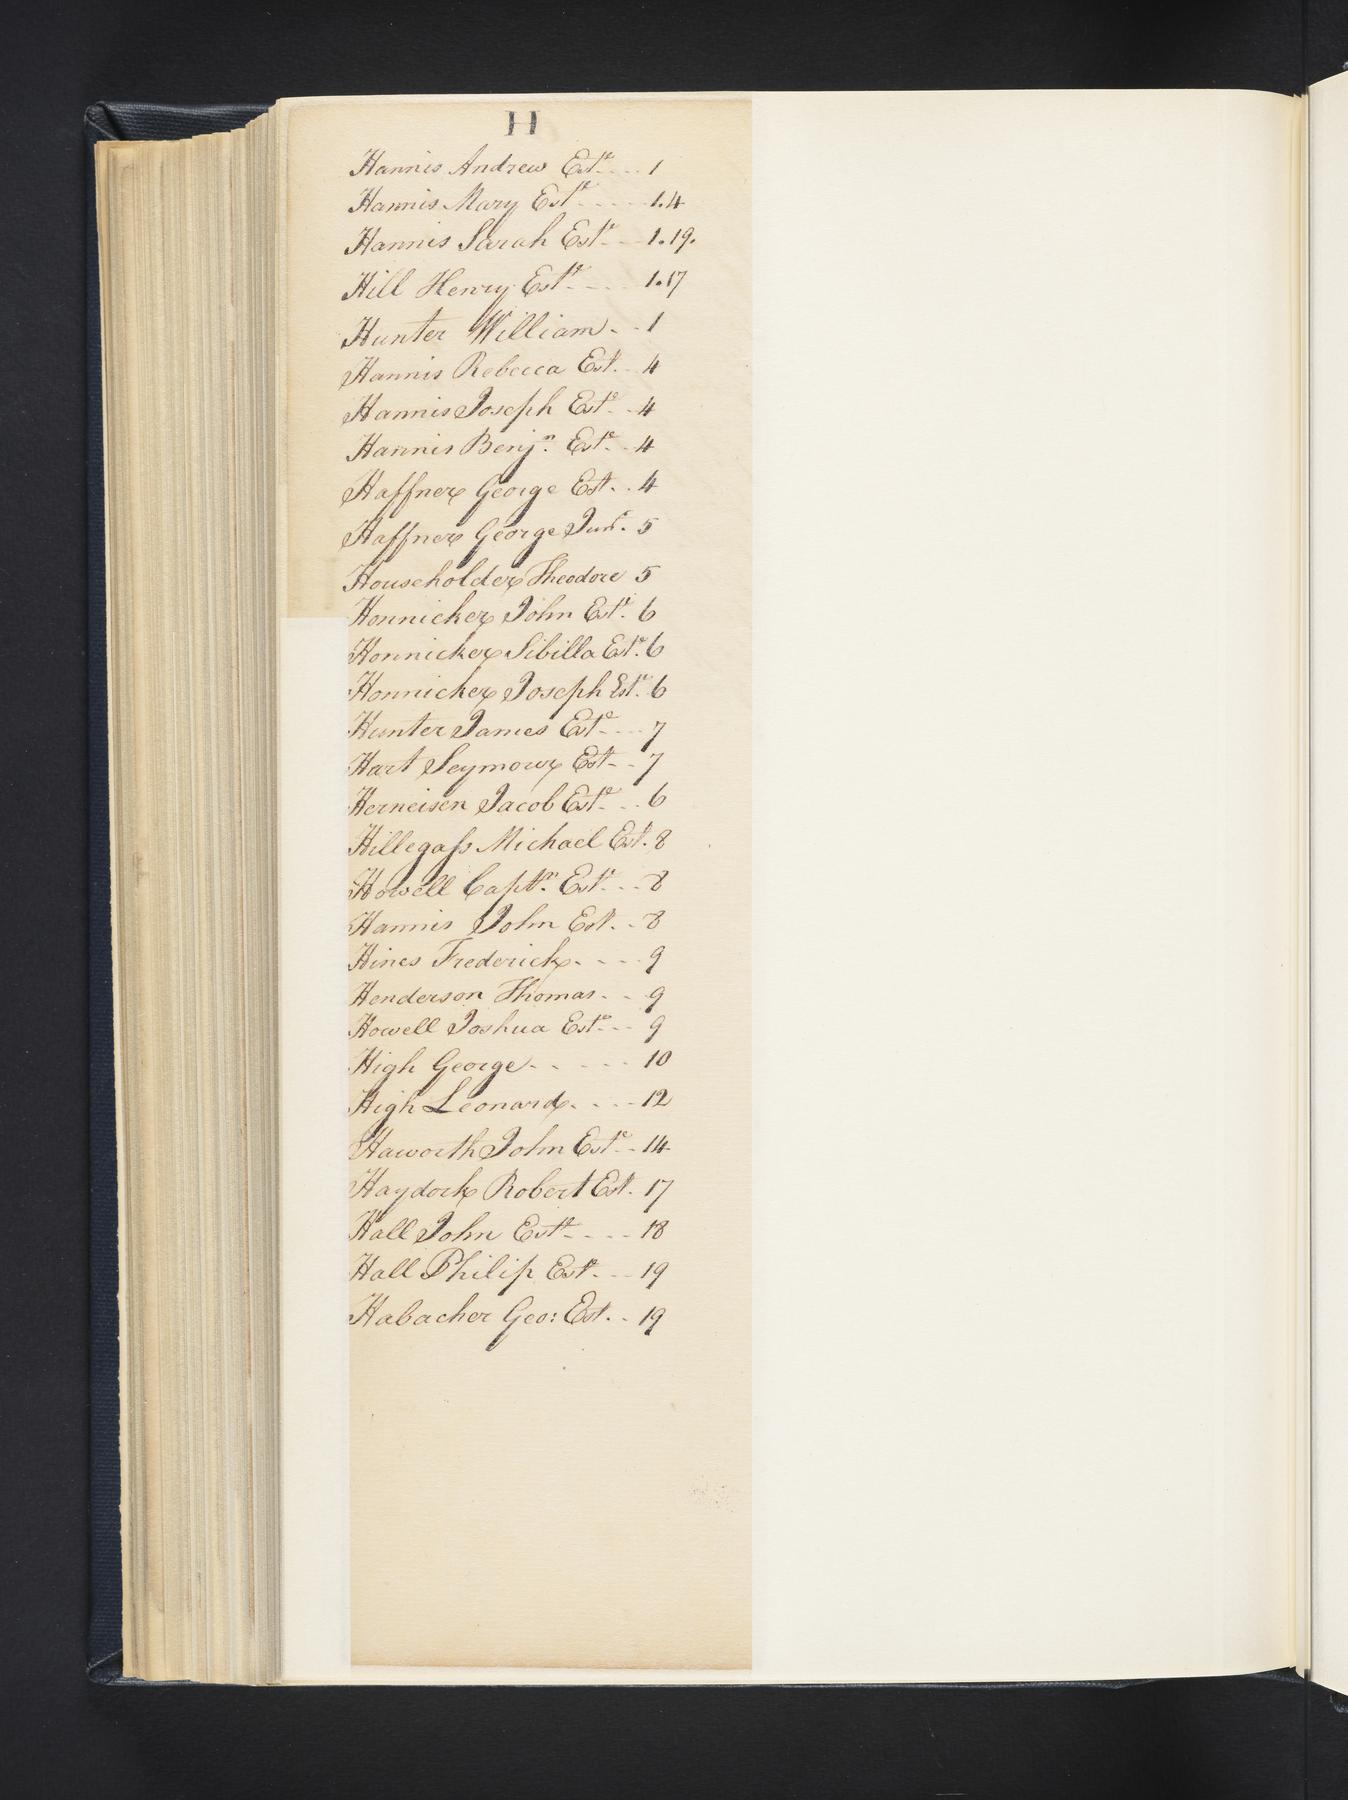 H
Hannis Andrew Est.e .... 1
Hannis Mary Est.e ..... 1.4
Hannis Sarah Est.e ... 1.19.
Hill Henry Est.e .... 1.17
Hunter William .. 1
Hannis Rebecca Est. .. 4
Hannis Joseph Est.e .. 4
Hannis Benj.n Est.e .. 4
Haffner George Est. .. 4
Haffner George Jun.r 5
Householder Theodore 5
Honnicker John Est.e 6
Honnicker Sibilla Est.e 6
Honnicker Joseph Est.e 6
Hunter James Est.e .... 7
Hart Seymour Est. .. 7
Herneisen Jacob Est.e ... 6
Hillegass Michael Est. 8
Howell Capt.n Est.e ... 8
Hannis John Est. .. 8
Hines Frederick .... 9
Henderson Thomas .. 9
Howell Joshua Est.e ... 9
High George ...... 10
High Leonard .... 12
Haworth John Est.e .. 14
Haydock Robert Est. 17
Hall John Est.e .... 18
Hall Philip Est. ... 19
Habacher Geo: Est. .. 19